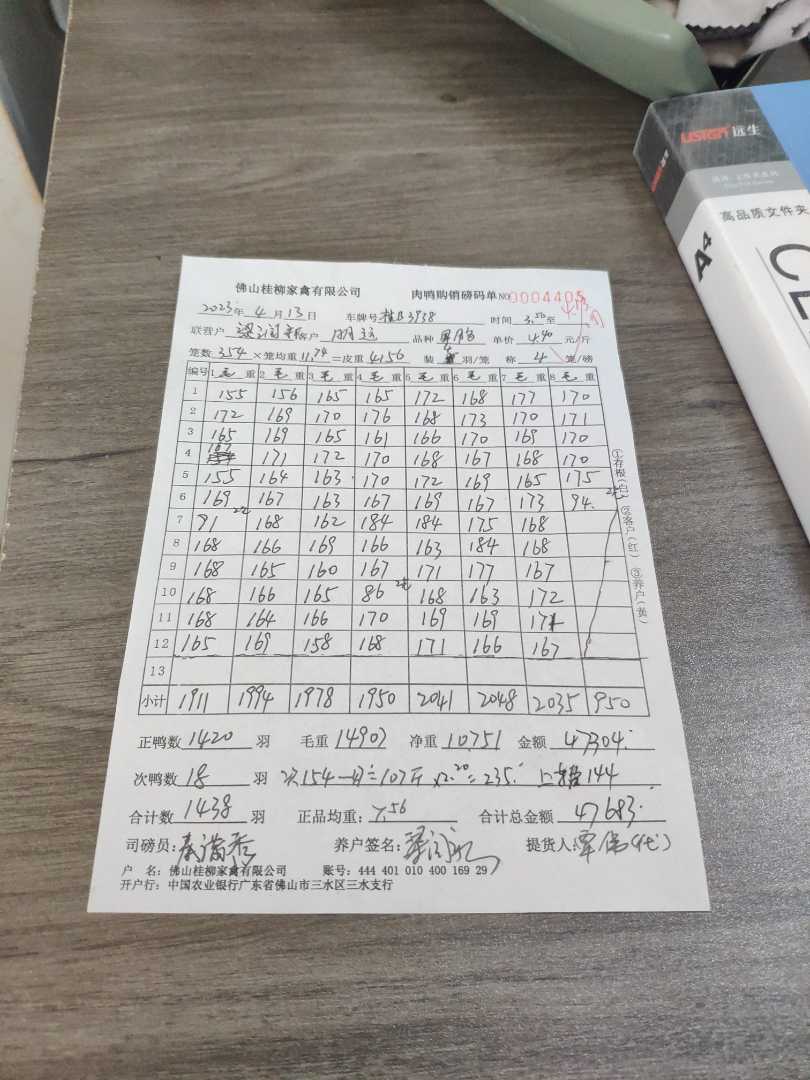 USIGN 远生
高品质文件夹
A4
佛山桂柳家禽有限公司 肉鸭购销磅码单 NO 0004405
2023年 4 月 13 日 车牌号 桂B3938 时间 3.50 至
联营户 客户 品种 单价 4.40 元/斤
笼数 354 ×笼均重 11.74 =皮重 4156 装 4 羽/笼 称 4 笼/磅
编号 1 毛 重 2 毛 重 3 毛 重 4 毛 重 5 毛 重 6 毛 重 7 毛 重 8 毛 重
1 155 156 165 165 172 168 177 170
2 172 169 170 176 168 173 170 171
3 165 169 165 161 166 170 169 170
4 167 171 172 170 168 167 168 170
5 155 164 163 170 172 169 165 175
6 169 167 163 167 169 167 173 94
7 91 168 162 184 184 175 168
8 168 166 169 166 163 184 168
9 168 165 160 167 171 177 167
10 168 166 165 86 168 163 172
11 168 164 166 170 169 169 171
12 165 169 158 168 171 166 167
13
小计 1911 1994 1978 1950 2041 2048 2035 950
①存根(白) ②客户(红) ③养户(黄)
正鸭数 1420 羽 毛重 14907 净重 10751 金额 47304.
次鸭数 18 羽 次154-47=107斤 ×2.20=235. 上 144
合计数 1438 羽 正品均重: 7.56 合计总金额 47683.
司磅员: 养户签名: 提货人:
户 名: 佛山桂柳家禽有限公司 账号: 444 401 010 400 169 29
开户行: 中国农业银行广东省佛山市三水区三水支行